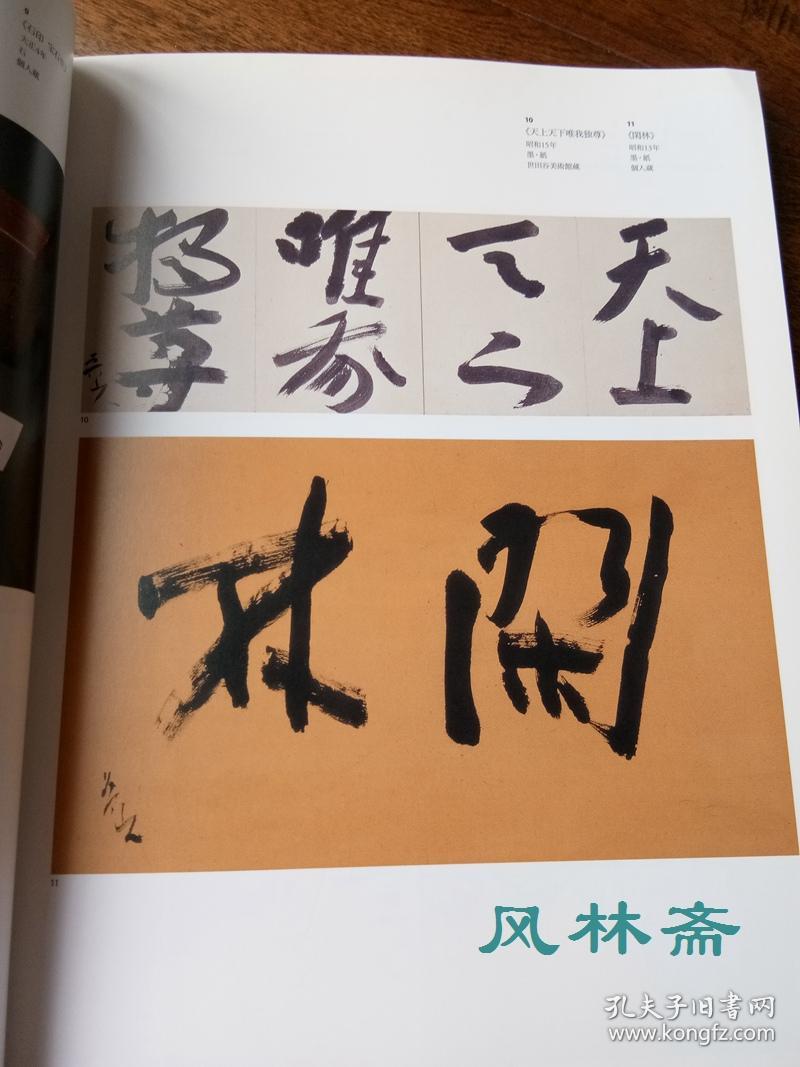 9
《石印 宝石印》
大正4年
石
個人蔵
10
《天上天下唯我独尊》
昭和15年
墨・紙
世田谷美術館蔵
11
《閑林》
昭和13年
墨・紙
個人蔵
天上
天下
唯我
独尊
10
閑林
11
风林斋
孔夫子旧书网
www.kongfz.com